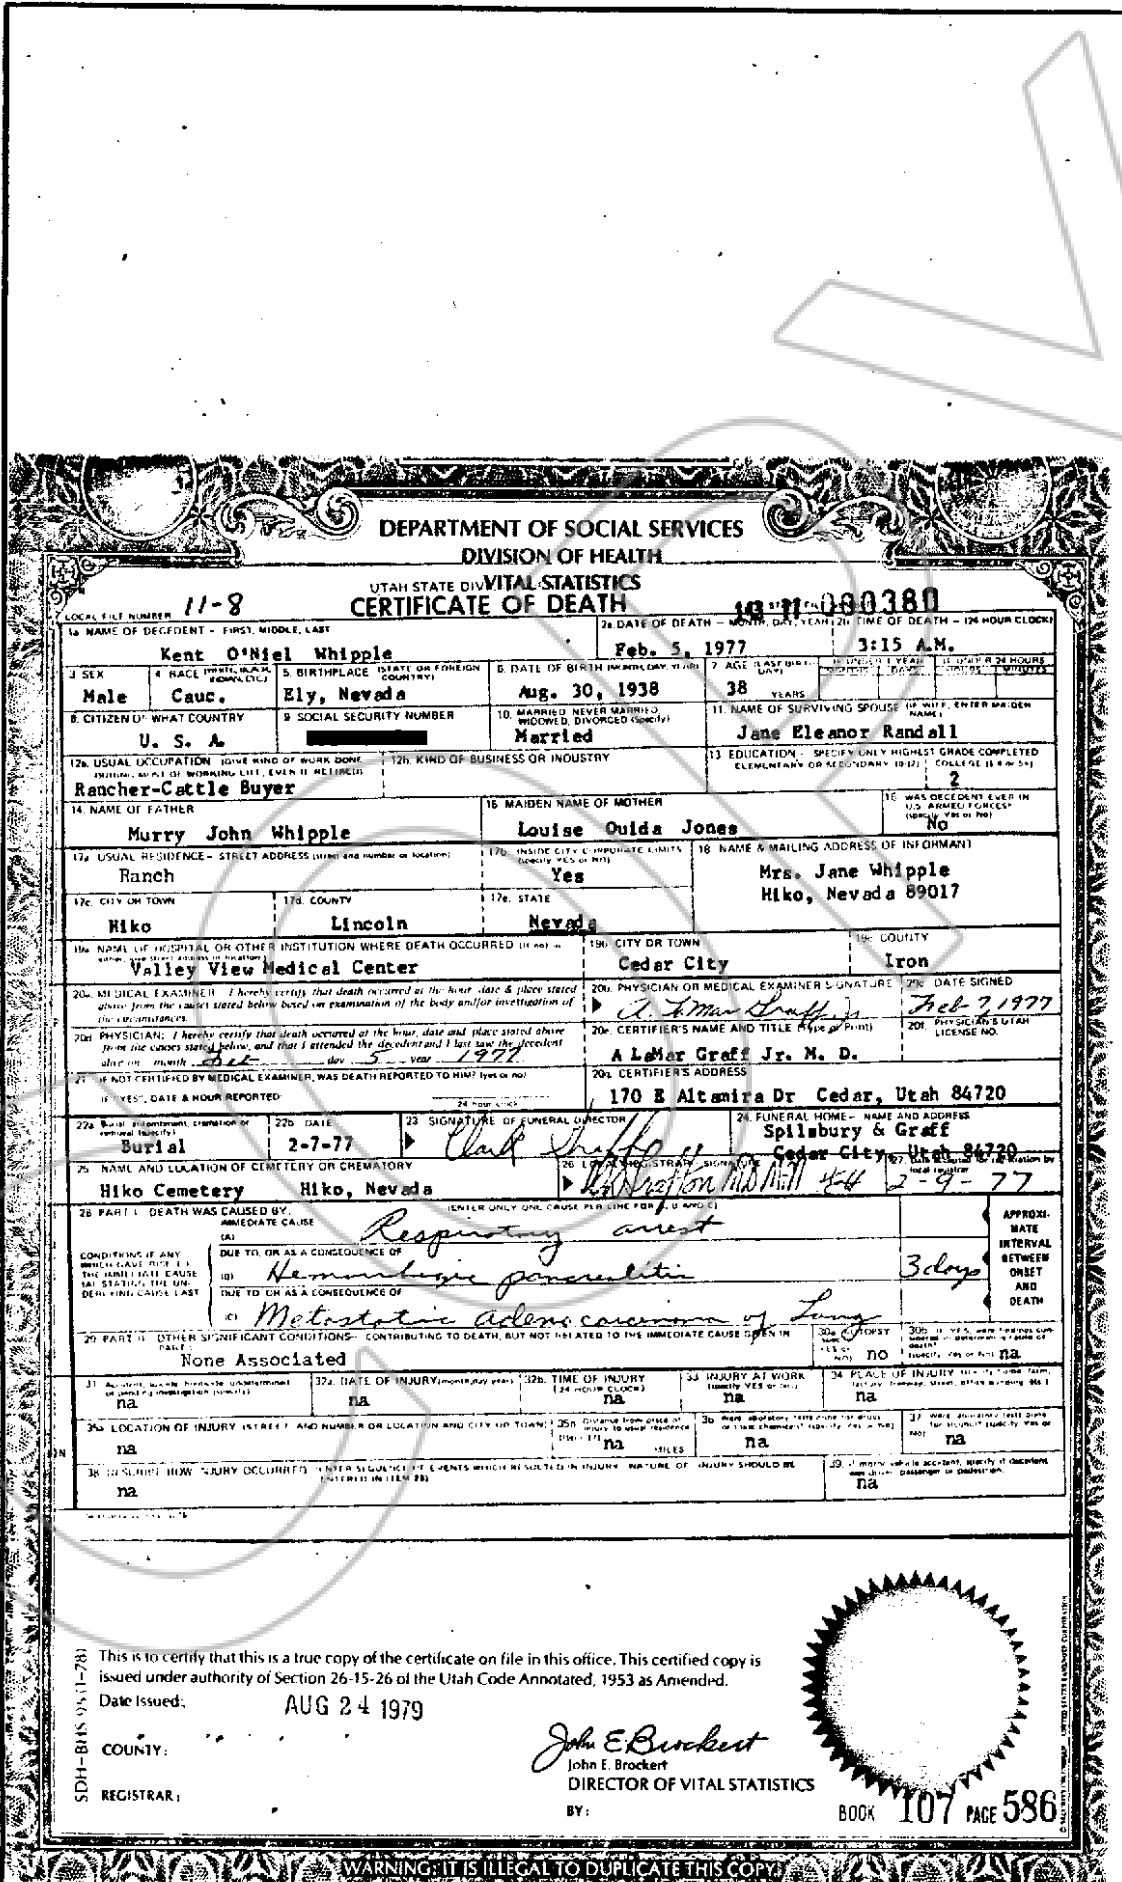 DEPARTMENT OF SOCIAL SERVICES
DIVISION OF HEALTH
UTAH STATE DIV VITAL STATISTICS
CERTIFICATE OF DEATH
LOCAL FILE NUMBER 11-8
1a NAME OF DECEDENT - FIRST, MIDDLE, LAST
Kent O'Niel Whipple
2a. DATE OF DEATH - MONTH, DAY, YEAR
Feb. 5, 1977
2b TIME OF DEATH - (24 HOUR CLOCK)
3:15 A.M.
3 SEX
Male
4. RACE
Cauc.
5. BIRTHPLACE (STATE OR FOREIGN COUNTRY)
Ely, Nevada
6. DATE OF BIRTH (MONTH, DAY, YEAR)
Aug. 30, 1938
7 AGE (LAST BIRTHDAY)
38 YEARS
8. CITIZEN OF WHAT COUNTRY
U. S. A.
9 SOCIAL SECURITY NUMBER
10. MARRIED, NEVER MARRIED, WIDOWED, DIVORCED (Specify)
Married
11. NAME OF SURVIVING SPOUSE (IF WIFE, ENTER MAIDEN NAME)
Jane Eleanor Randall
12a. USUAL OCCUPATION (GIVE KIND OF WORK DONE DURING MOST OF WORKING LIFE, EVEN IF RETIRED)
Rancher-Cattle Buyer
12b. KIND OF BUSINESS OR INDUSTRY
13 EDUCATION - SPECIFY ONLY HIGHEST GRADE COMPLETED
2
14. NAME OF FATHER
Murry John Whipple
15 MAIDEN NAME OF MOTHER
Louise Ouida Jones
16 WAS DECEDENT EVER IN U.S. ARMED FORCES?
No
17a USUAL RESIDENCE - STREET ADDRESS (street and number or location)
Ranch
17b. INSIDE CITY CORPORATE LIMITS (Specify YES or NO)
Yes
18 NAME & MAILING ADDRESS OF INFORMANT
Mrs. Jane Whipple
Hiko, Nevada 89017
17c. CITY OR TOWN
Hiko
17d. COUNTY
Lincoln
17e. STATE
Nevada
19a. NAME OF HOSPITAL OR OTHER INSTITUTION WHERE DEATH OCCURRED
Valley View Medical Center
19b CITY OR TOWN
Cedar City
19c COUNTY
Iron
20a. MEDICAL EXAMINER I hereby certify that death occurred at the hour date & place stated above from the causes stated below based on examination of the body and/or investigation of the circumstances.
20b. PHYSICIAN OR MEDICAL EXAMINER SIGNATURE
20c DATE SIGNED
Feb 7, 1977
20d PHYSICIAN: I hereby certify that death occurred at the hour, date and place stated above from the causes stated below, and that I attended the decedent and I last saw the decedent alive on month Feb day 5 year 1977
20e. CERTIFIER'S NAME AND TITLE (Type or Print)
A LaMar Graff Jr. M. D.
20f. PHYSICIAN'S UTAH LICENSE NO.
21 IF NOT CERTIFIED BY MEDICAL EXAMINER, WAS DEATH REPORTED TO HIM? (yes or no)
IF "YES", DATE & HOUR REPORTED
24 hour clock
20g. CERTIFIER'S ADDRESS
170 E Altamira Dr Cedar, Utah 84720
22a Burial, entombment, cremation or removal (specify)
Burial
22b DATE
2-7-77
23 SIGNATURE OF FUNERAL DIRECTOR
24. FUNERAL HOME - NAME AND ADDRESS
Spilsbury & Graff
Cedar City, Utah 84720
25 NAME AND LOCATION OF CEMETERY OR CREMATORY
Hiko Cemetery Hiko, Nevada
2-9-77
28 PART I. DEATH WAS CAUSED BY:
(ENTER ONLY ONE CAUSE PER LINE FOR A, B AND C)
IMMEDIATE CAUSE
(A) Respiratory arrest
DUE TO, OR AS A CONSEQUENCE OF
(B) Hemorrhagic pancreatitis 3 days
DUE TO, OR AS A CONSEQUENCE OF
(C) Metastatic adenocarcinoma of Lung
CONDITIONS IF ANY WHICH GAVE RISE TO THE IMMEDIATE CAUSE (A) STATING THE UNDERLYING CAUSE LAST
APPROXIMATE INTERVAL BETWEEN ONSET AND DEATH
29 PART II. OTHER SIGNIFICANT CONDITIONS - CONTRIBUTING TO DEATH, BUT NOT RELATED TO THE IMMEDIATE CAUSE GIVEN IN PART I
None Associated
30a AUTOPSY
no
na
31
na
32a. DATE OF INJURY (month, day, year)
na
32b. TIME OF INJURY (24 HOUR CLOCK)
na
33 INJURY AT WORK (specify YES or NO)
na
34 PLACE OF INJURY
na
35a LOCATION OF INJURY (STREET AND NUMBER OR LOCATION AND CITY OR TOWN)
na
35b Distance from place of injury to usual residence
na MILES
36
na
37
na
38 DESCRIBE HOW INJURY OCCURRED (ENTER SEQUENCE OF EVENTS WHICH RESULTED IN INJURY. NATURE OF INJURY SHOULD BE ENTERED IN ITEM 28)
na
39. If motor vehicle accident, specify if decedent was driver, passenger or pedestrian.
na
This is to certify that this is a true copy of the certificate on file in this office. This certified copy is
issued under authority of Section 26-15-26 of the Utah Code Annotated, 1953 as Amended.
Date Issued: AUG 24 1979
COUNTY:
REGISTRAR:
John E Brockert
John E. Brockert
DIRECTOR OF VITAL STATISTICS
BY:
BOOK 107 PAGE 586
WARNING: IT IS ILLEGAL TO DUPLICATE THIS COPY